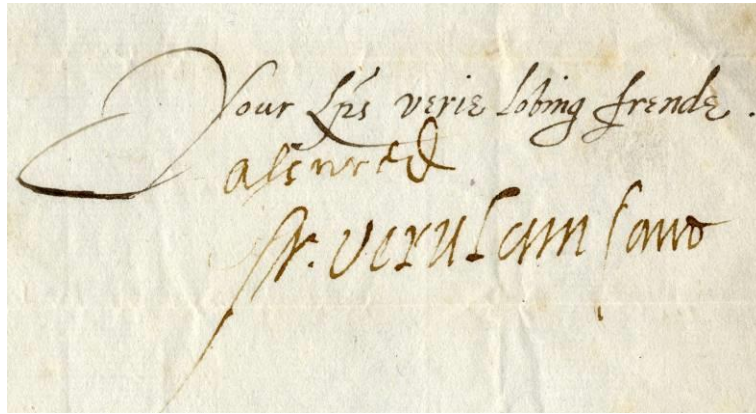 Your Lps verie loving frende.
assured
Fr. Verulam Canc